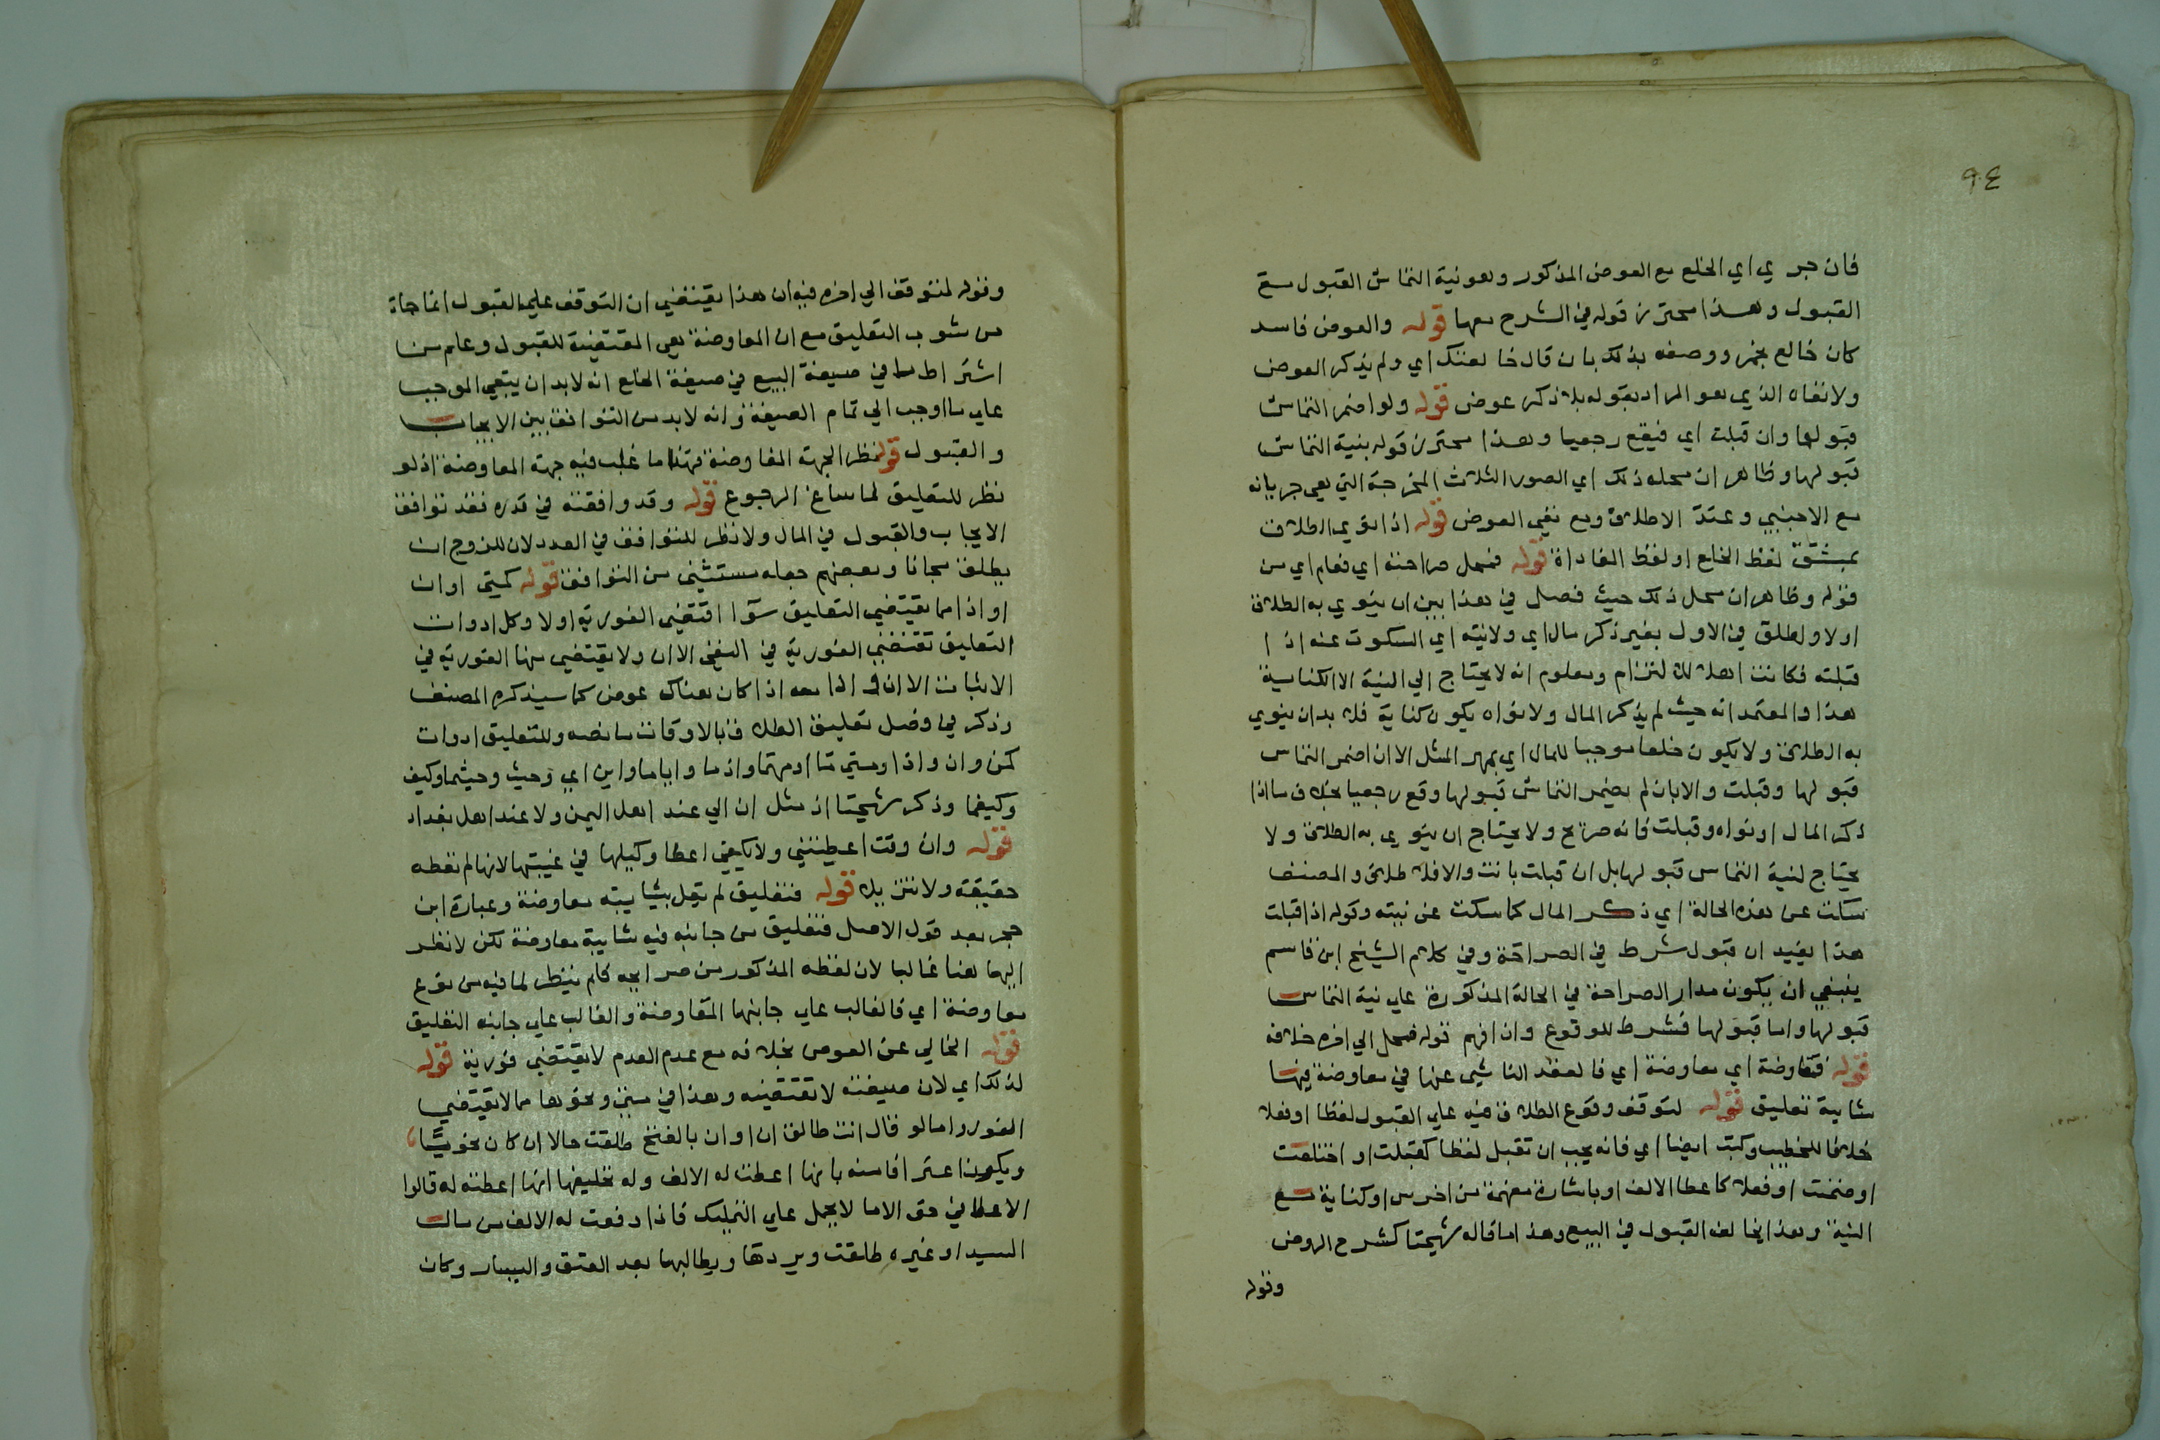 ٩٤
فان جري اي الخلع مع العوض المذكور وهو نية التماس القبول مع
القبول وهذا محترز قوله في الشرح معها قوله والعوض فاسد
كان خالع بخمر ووصفه بذلك بان قال خالعتك اي ولم يذكر العوض
ولا نفاه الذي هو المراد بقوله بلا ذكر عوض قوله ولو اضمر التماس
قبولها وان قبلت اي فيقع رجعيا وهذا محترز قوله بنية التماس
قبولها وظاهر ان محله ذلك اي الصور الثلاث المخرجة التي هي جريانه
مع الاجنبي وعند الاطلاق ومع نفي العوض قوله اذا نوي الطلاق
بمشتق لفظ الخلع او لفظ الفاداة قوله فمحل صراحته اي فعلم اي من
قوله وظاهر ان محل ذلك حيث فصل في هذا بين ان ينوي به الطلاق
اولا ولطلق في الاول بغير ذكر مال اي ولا نيته اي السكوت عنه اذا
قبلته فكانت اهلا للالتزام ومعلوم انه لا يحتاج الي النية الا الكناية
هذا والمعتمد انه حيث لم يذكر المال ولا نواه يكون كناية فلا بد ان ينوي
به الطلاق ولا يكون خلعا موجبا للمال اي بمهر المثل الا ان اضمر التماس
قبولها وقبلت والا بان لم يضمر التماس قبولها وقع رجعيا بخلاف ما اذا
ذكر المال او نواه وقبلت فانه صريح ولا يحتاج ان ينوي به الطلاق ولا
يحتاج لنية التماس قبولها بل ان قبلت بانت والا فلا طلاق والمصنف
ساكت عن هذه الحالة اي ذكر المال كما سكت عن نيته وقوله اذا قبلت
هذا يفيد ان قبول شرط في الصراحة وفي كلام الشيخ ابن قاسم
ينبغي ان يكون مدار الصراحة في الحالة المذكورة علي نية التماس
قبولها واما قبولها فشرط للوقوع وان افهم قوله فمحل الي اخره خلافه
قوله فمعاوضة اي معاوضة اي فالعقد الناشي عنها في معاوضة فيها
شايبة تعليق قوله لتوقف وقوع الطلاق فيه علي القبول لفظا او فعلا
خلافا للخطيب وكبت ايضا اي فانه يجب ان تقبل لفظا كقبلت او اختلعت
او ضمنت او فعلا كاعطا الالف او باشارة مفهمة من اخرس او كناية مع
النية وهذا يخالف القبول في البيع وهذا ما قاله شيخنا كشرح الروض
وقوله
وقوله لمتوقف الي اخره فيه ان هذا يقتضي ان التوقف علي القبول انما جاة
من شوب التعليق مع ان المعاوضة هي المقتضية للقبول وعلم من
اشتراط ما في صيغة البيع في صيغة الخلع انه لا بد ان يبقي الموجب
علي ما اوجب الي تمام الصيغة وانه لا بد من التوافق بين الايجاب
والقبول قوله نظرا لجهة المعاوضة فهذا ما غلب فيه جهة المعاوضة اذ لو
نظر للتعليق لما ساغ الرجوع قوله وقد وافقته في قدره فقد توافق
الايجاب والقبول في المال ولا نظر للتوافق في العدد لان للزوج ان
يطلق مجانا وبعضهم جعله مستثني من التوافق قوله كمتي او ان
او اذا مما يقتضي التعليق سوا اقتضي الفورية اولا وكل ادوات
التعليق تقتضي الفورية في النفي الا ان ولا يقتضي منها الفورية في
الاثبات الا ان و اذا معه اذا كان هناك عوض كما سيذكره المصنف
وذكر في فصل تعليق الطلاق بالاوقات ما نصه وللتعليق ادوات
كمن وان واذا ومتي متا او مهما واذ ما واياما واين اي وحيث وحيثما وكيف
وكيفما وذكر شيخنا اذ مثل ان الي عند اهل اليمن ولا عند اهل بغداد
قوله وان وقت اعطيتني ولا يكفي اعطا وكيلها في غيبتها لانها لم تعطه
حقيقة ولا تنزيلا قوله فتعليق لم يقل بشايبة معاوضة وعبارة ابن
حجر بعد قول الاصل فتعليق من جانبه فيه شايبة معاوضة لكن لا نظر
اليها هنا غالبا لان لفظه المذكور من صرايحه فلم ينظر لما فيه من نوع
معاوضة اي فالغالب علي جانبها المعاوضة والغالب علي جانبه التعليق
قوله الخالي عن العوض بخلافه مع عدم العدم لا يقتضي فورية قوله
لذلك اي لان صيغته لا تقتضيه وهذا في متي ونحوها مما لا يقتضي
الفور واما لو قال انت طالق ان او ان بالفتح طلقت حالا ان كان نحويا
ويكون اعترافا منه بانها اعطت له الالف وله تحليفها انها اعطته له قالوا
الاعطا في حق الاما لا يحمل علي التمليك فاذا دفعت له الالف من مال
السيد او غيره طلقت ويردها ويطالبها بعد العتق واليسار وكان